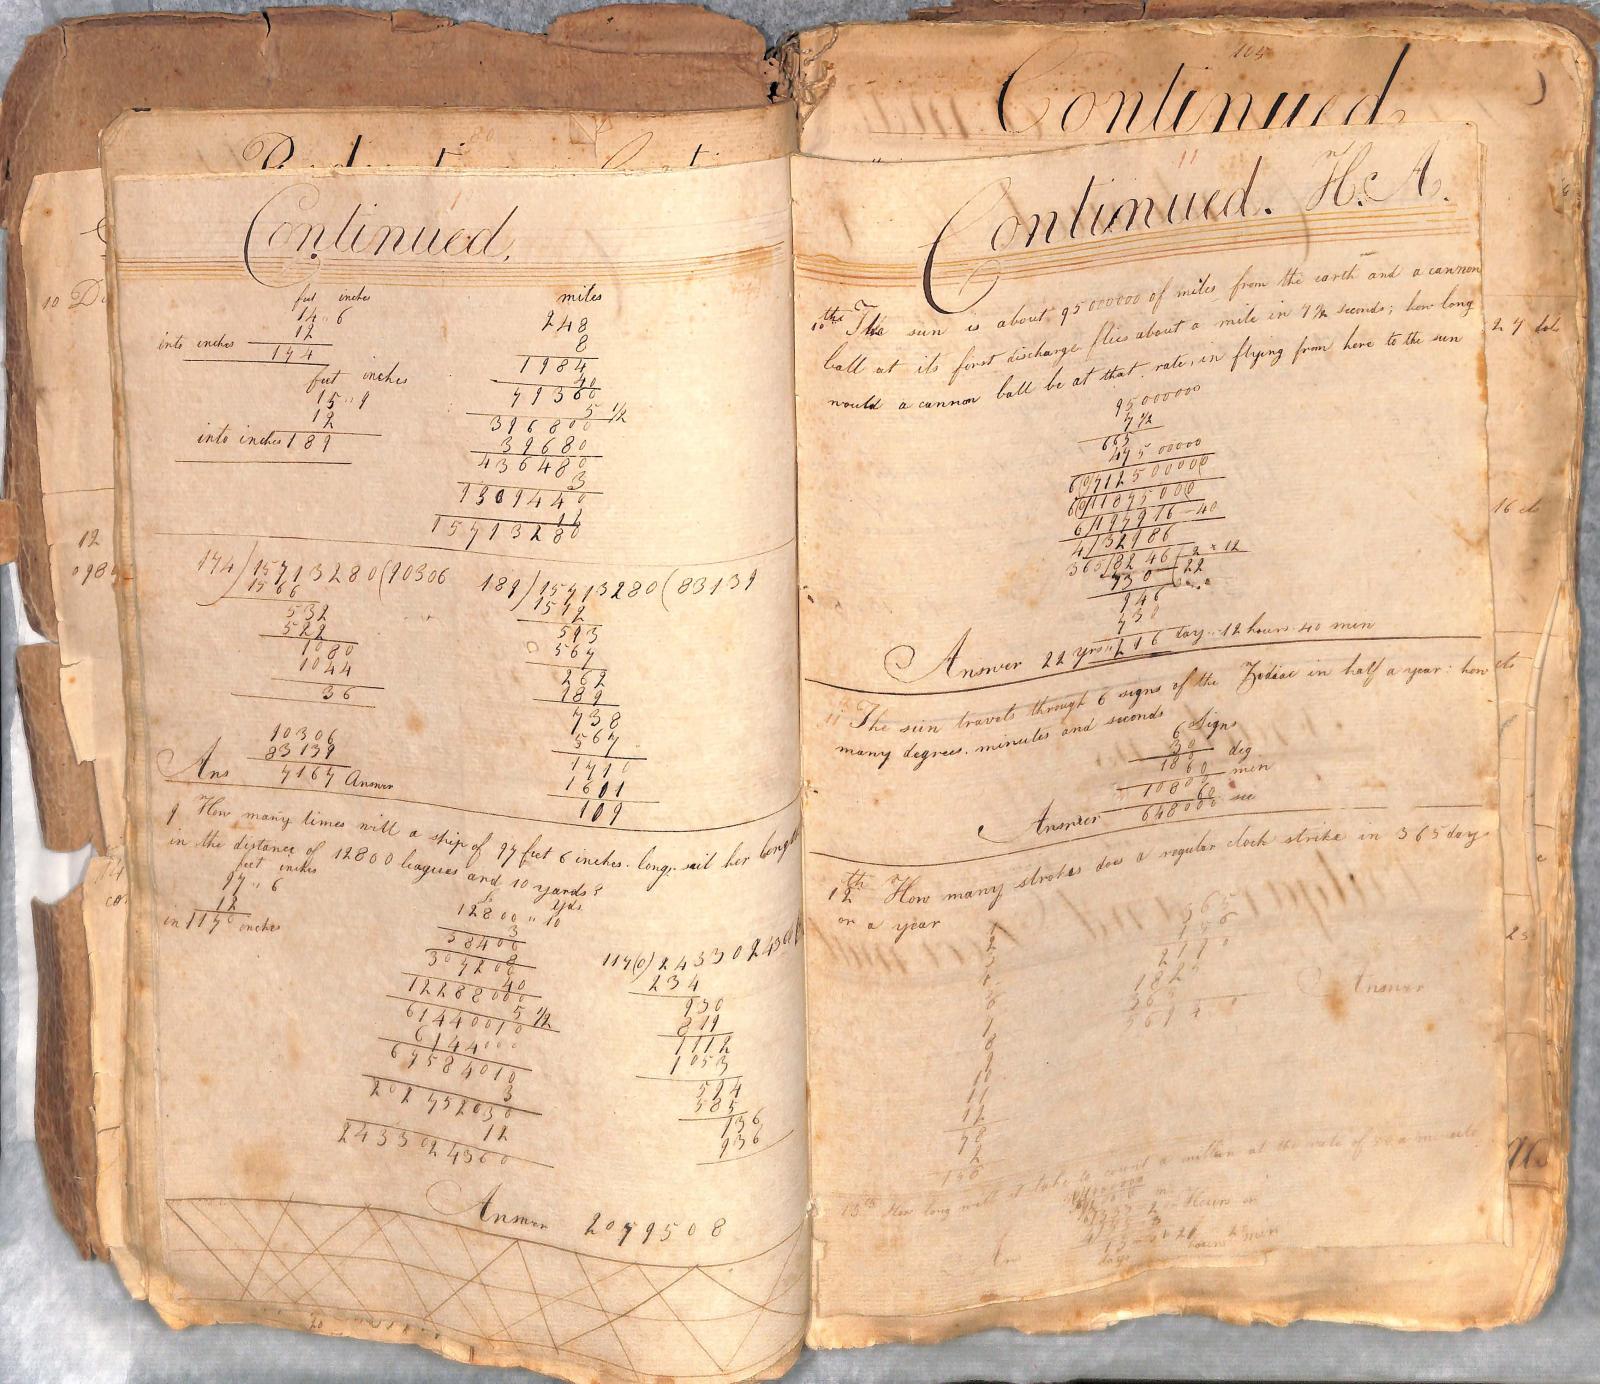 Continued.
feet inches
14 .. 6
12
into inches 174
feet inches
15 .. 9
12
into inches 189
miles
248
8
1984
40
79360
5 1/2
396800
39680
436480
3
1309440
12
15713280
174)15713280(90306
1566
532
522
1080
1044
36
189)15713280(83139
1512
593
567
262
189
738
567
1710
1601
109
90306
83139
Ans 7167 Answer
9 How many times will a ship of 97 feet 6 inches. long. sail her length
in the distance of 12800 leagues and 10 yards?
feet inches
97 .. 6
12
in 1170 inches
yds.
12800 .. 10
3
38400
8
307200
40
12288000
5 1/2
61440010
6144000
67584010
3
202752030
12
2433024360
117(0)243302436(0
234
930
819
1112
1053
594
585
936
936
Answer 2079508
104
Continued
11
Continued. H. A.
10th The sun is about 95000000 of miles from the earth and a cannon
ball at its first discharge flies about a mile in 7 1/2 seconds; how long
would a cannon ball be at that rate, in flying from here to the sun
95000000
7 1/2
665
47500000
6(0)71250000(0
6(0)1187500(0
6/197916-40
4/32986
365/8246(2 × 12
730 (22
946
730
Answer 22 yrs 216 day .. 12 hours .. 40 men
11 The sun travels through 6 signs of the Zodiac in half a year: how
many degrees. minutes and seconds
6 signs
30
180 deg
60
10800 men
60
Answer 648000 sec
12th How many strokes does a regular clock strike in 365 days
or a year
1
2
7
8
9
10
11
12
78
2
156
365
156
2190
1825
365
Answer
13th How long will it take to count a million at the rate of 50 a minute
27 do
16 do